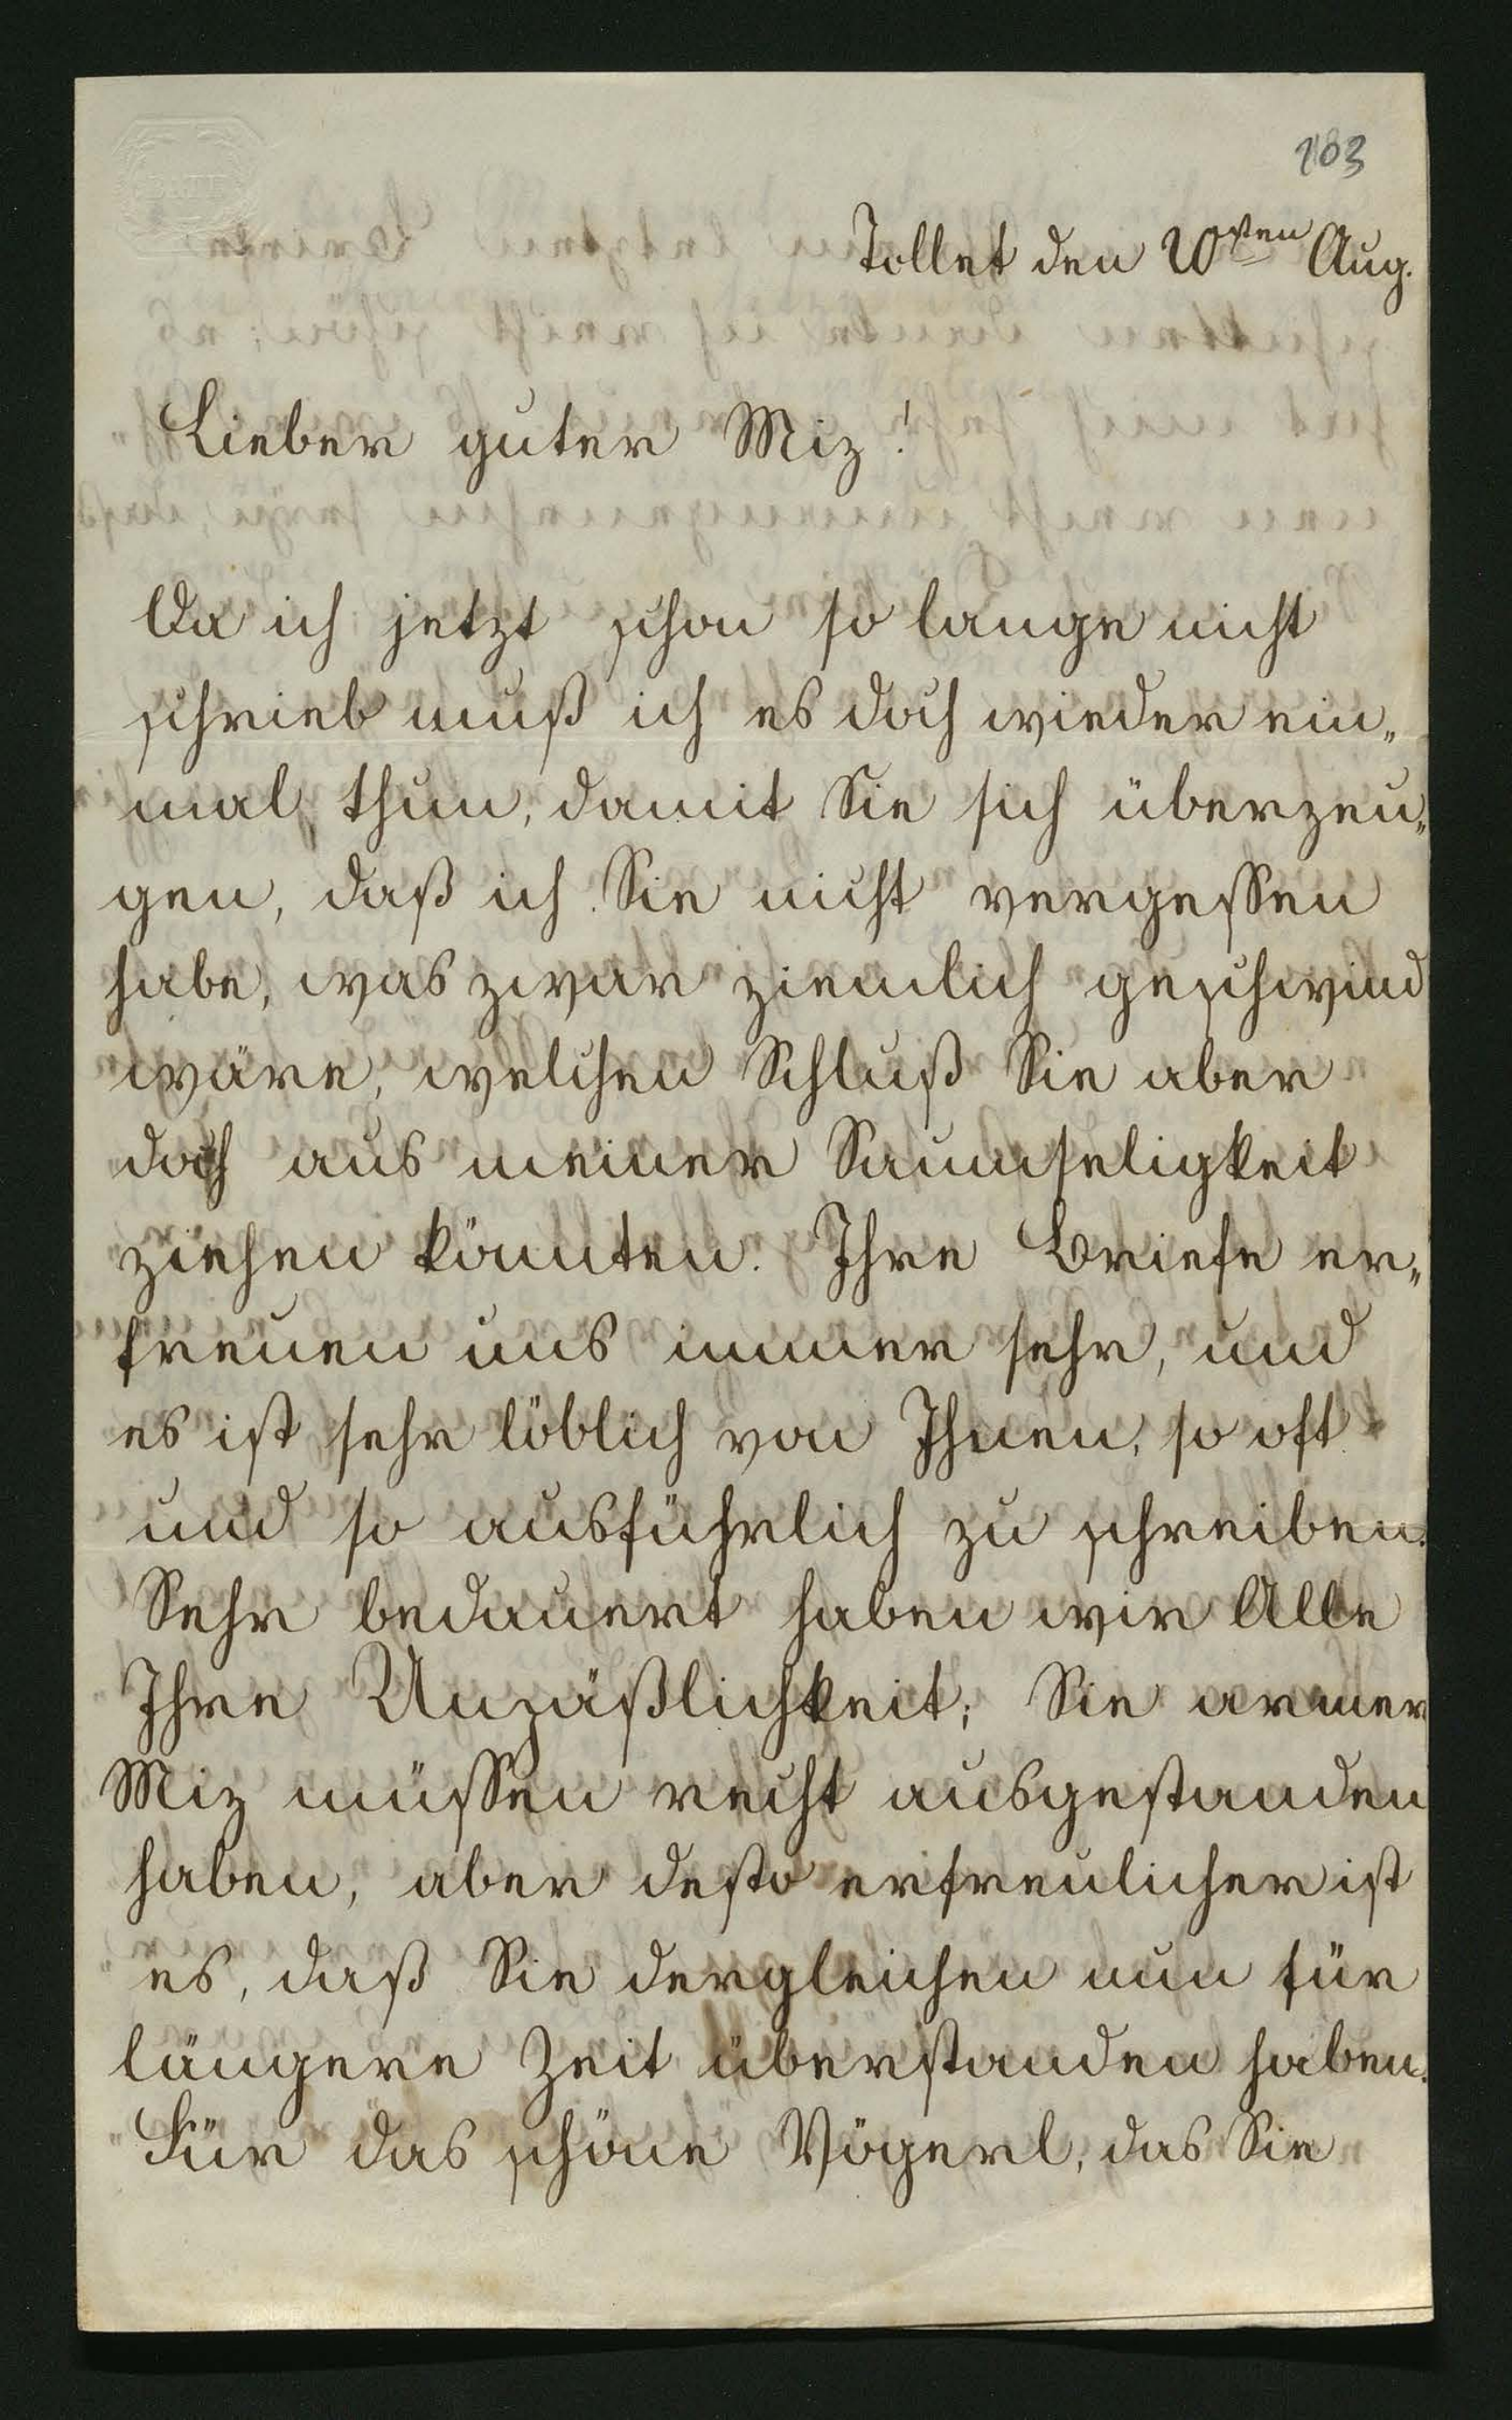 103
Tollet den 20sten Aug.
Lieber guter Miz!
Da ich jetzt schon so lange nicht
schrieb muß ich es doch wieder ein„
mal thun, damit Sie sich überzeu„
gen, daß ich Sie nicht vergessen
habe, was zwar ziemlich geschwind
wäre, welchen Schluß Sie aber
doch aus meiner Saumseligkeit
ziehen könnten. Ihre Briefe er„
freuen uns immer sehr, und
es ist sehr löblich von Ihnen, so oft
und so ausführlich zu schreiben.
Sehr bedauert haben wir Alle
Ihre Unpäßlichkeit; Sie armer
Miz müssen recht ausgestanden
haben, aber desto erfreulicher ist
es, daß Sie dergleichen nun für
längere Zeit überstanden haben.
Für das schöne Vögerl, das Sie